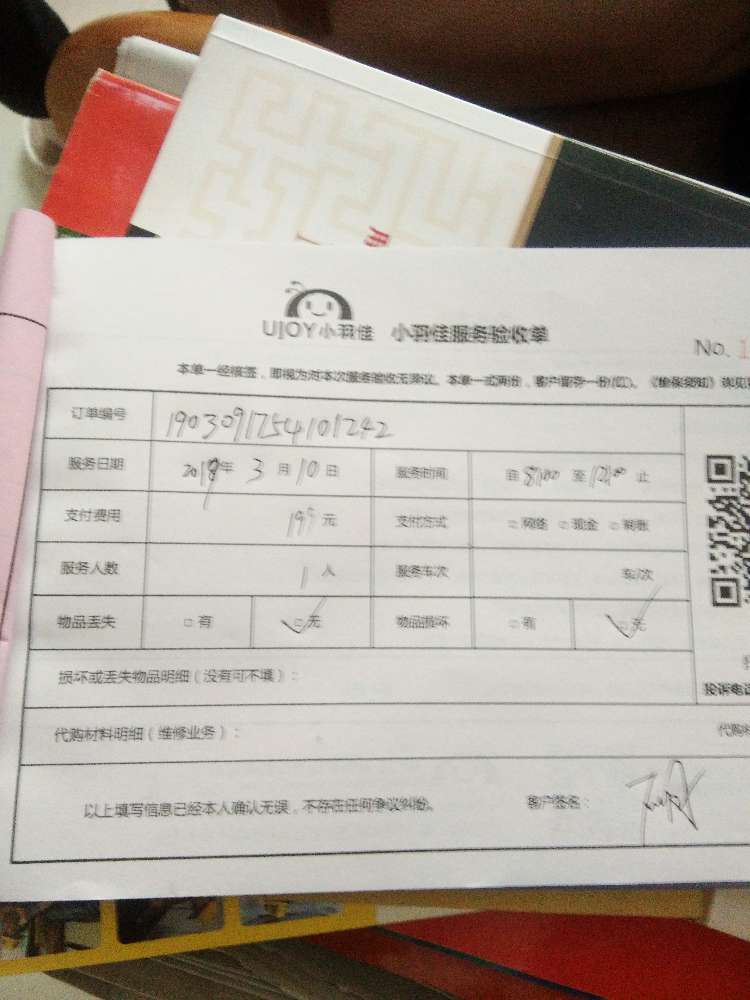 UJOY小羽佳 小羽佳服务验收单
No. 1
本单一经核签，即视为对本次服务验收无异议。本单一式两份，客户留存一份(红)。
订单编号 1903091754101242
服务日期 2019年 3月10日 服务时间 自 8:00 至 12:00 止
支付费用 元 支付方式 □网络 □现金 □转账
服务人数 1人 服务车次 车/次
物品丢失 □有 □无 物品损坏 □有 □无
损坏或丢失物品明细（没有可不填）：
投诉电话
代购材料明细（维修业务）： 代购
以上填写信息已经本人确认无误，不存在任何争议纠纷。 客户签名：